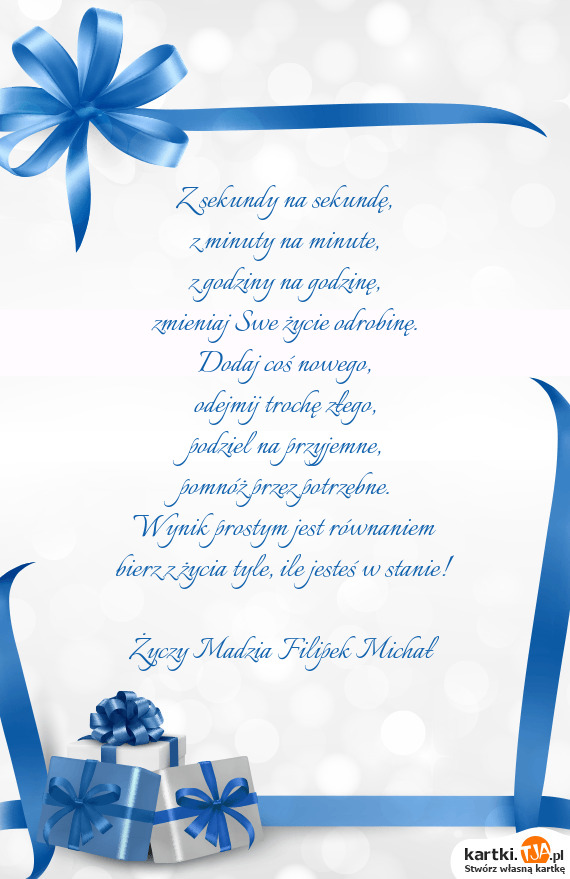 Z sekundy na sekundę,
z minuty na minute,
z godziny na godzinę,
zmieniaj Swe życie odrobinę.
Dodaj coś nowego,
odejmij trochę złego,
podziel na przyjemne,
pomnóż przez potrzebne.
Wynik prostym jest równaniem
bierz z życia tyle, ile jesteś w stanie!
Życzy Madzia Filipek Michał
kartki.TJA.pl
Stwórz własną kartkę